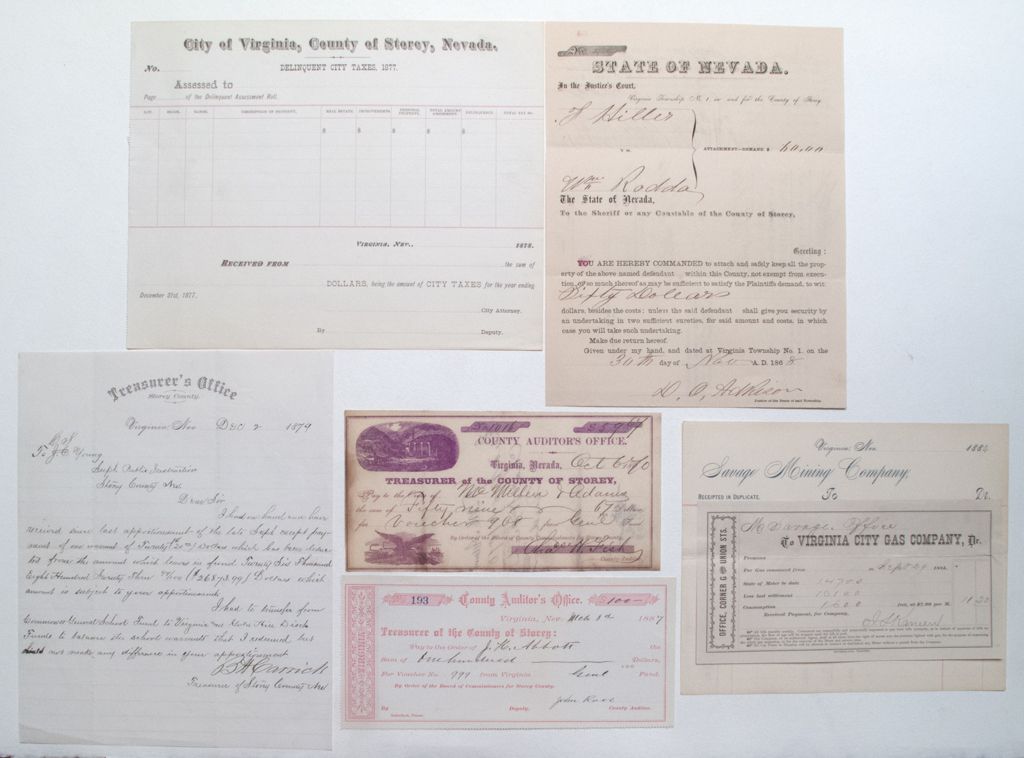 City of Virginia, County of Storey, Nevada.
No.
DELINQUENT CITY TAXES, 1877.
Assessed to
Page of the Delinquent Assessment Roll.
LOT. BLOCK. RANGE. DESCRIPTION OF PROPERTY. REAL ESTATE. IMPROVEMENTS. PERSONAL PROPERTY. TOTAL AMOUNT ASSESSMENT. DELINQUENCY. TOTAL TAX
$ $ $ $ $
VIRGINIA, NEV., 1878.
RECEIVED FROM the sum of
DOLLARS, being the amount of CITY TAXES for the year ending
December 31st, 1877.
City Attorney.
By Deputy.
No.
STATE OF NEVADA.
In the Justice's Court,
Virginia Township No. 1, in and for the County of Storey
Hiller
vs. ATTACHMENT—DEMAND $ 60.00
Wm Rodda
The State of Nevada,
To the Sheriff or any Constable of the County of Storey,
Greeting:
YOU ARE HEREBY COMMANDED to attach and safely keep all the prop-
erty of the above named defendant within this County, not exempt from execu-
tion, or so much thereof as may be sufficient to satisfy the Plaintiffs demand, to wit:
Fifty Dollars
dollars, besides the costs: unless the said defendant shall give you security by
an undertaking in two sufficient sureties, for said amount and costs, in which
case you will take such undertaking.
Make due return hereof.
Given under my hand, and dated at Virginia Township No. 1. on the
30th day of Nov A. D. 1868
D. O. Adkison
Justice of the Peace of said Township
Treasurer's Office
Storey County.
Virginia Nev Dec 2 1879
To Young
Supt Public Instruction
Storey County Nev
Dear Sir
I had on hand and have
received since last apportionment of the late Supt except pay-
ment of one warrant of Twenty Dollars which has been deduc-
ted from the amount which leaves in fund Twenty Six Thousand
Eight Hundred Seventy Three Dollars which
amount is subject to your apportionment
I had to transfer from
School Fund to Virginia and Gold Hill Disct
Funds to balance the school warrants that I redeemed but
not make any difference in your apportionment
Carrick
Treasurer of Storey County Nev
No 1016 $59
COUNTY AUDITOR'S OFFICE.
Virginia, Nevada, Oct 6 1870
TREASURER OF THE COUNTY OF STOREY,
Pay to the Order of & Adams
the sum of Fifty nine & 67 Dollars
for Voucher 908 from Genl Fund
By Order of the Board of County Commissioners
Chas H. Fish
193 County Auditor's Office. $100—
Virginia, Nev. Mch 8d 1887
Treasurer of the County of Storey:
Pay to the Order of J. H. Abbott the
Sum of One hundred Dollars,
For Voucher No. 999 from Virginia Genl Fund.
By Order of the Board of Commissioners for Storey County.
John Ross
By Deputy. County Auditor.
Virginia, Nev. 1884
Savage Mining Company,
RECEIPTED IN DUPLICATE. To Dr.
OFFICE, CORNER C AND UNION STS.
M Savage Office
To VIRGINIA CITY GAS COMPANY, Dr.
Premises
For Gas consumed from to Sept 24 188
State of Meter to date 14700
Less last settlement 13100
Consumption 1600
Received Payment, for Company,